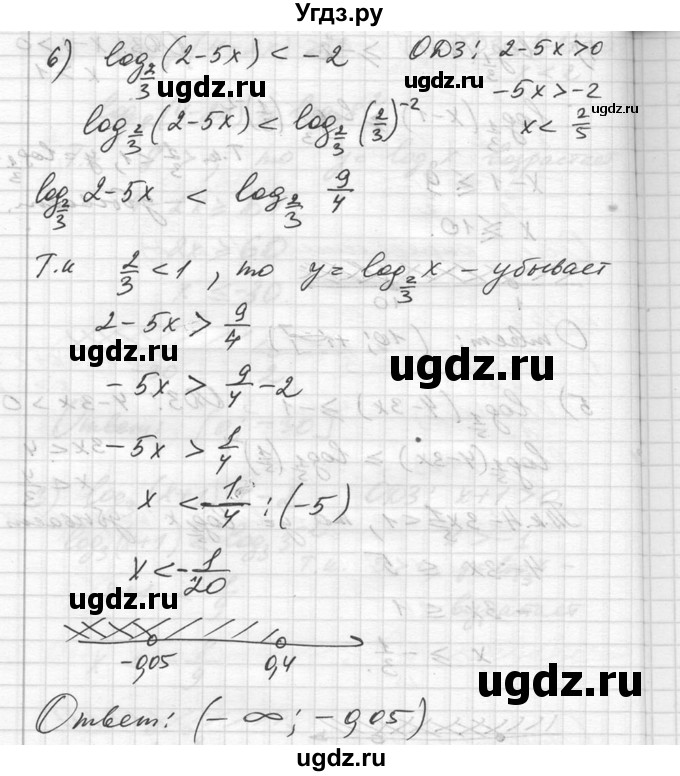 Угдз.ру
6) log_{2/3}(2-5x) < -2   ОДЗ: 2-5x>0
ugdz.ru
ugdz.ru
-5x>-2
ugdz.ru
log_{2/3}(2-5x) < log_{2/3}(2/3)^{-2}   x< 2/5
ugdz.ru
ugdz.ru
log_{2/3} 2-5x < log_{2/3} 9/4
ugdz.ru
Т.к 2/3 <1, то y=log_{2/3} x - убывает
2-5x > 9/4
ugdz.ru
ugdz.ru
ugdz.ru
-5x > 9/4 -2
-5x > 1/4
ugdz.ru
x < 1/4 : (-5)
ugdz.ru
x<-1/20
ugdz.ru
-0,05   0,4
ugdz.ru
ugdz.ru
Ответ: (-∞; -0,05)
ugdz.ru
ugdz.ru